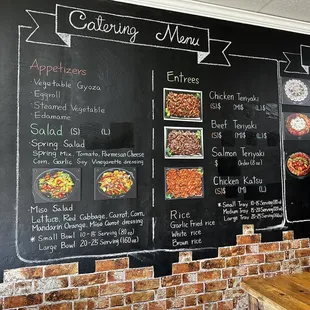 Catering Menu
Appetizers
Vegetable Gyoza
Eggroll
Steamed Vegetable
Edamame
Salad (S) (L)
Spring Salad
Spring Mix, Tomato, Parmesan Cheese
Corn, Garlic Soy Vinegarette dressing
Miso Salad
Lettuce, Red Cabbage, Carrot, Corn,
Mandarin Orange, Miso Dressing
* Small Bowl 8-10 Serving (80oz)
Large Bowl 20-25 Serving (160oz)
Entrees
Chicken Teriyaki
(S)$ (M)$ (L)$
Beef Teriyaki
(S)$ (M)$ (L)$
Salmon Teriyaki
$
Chicken Katsu
(S)$ (M)$ (L)$
Rice
Garlic Fried rice
White rice
Brown rice
* Small Tray
Medium Tray
Large Tray